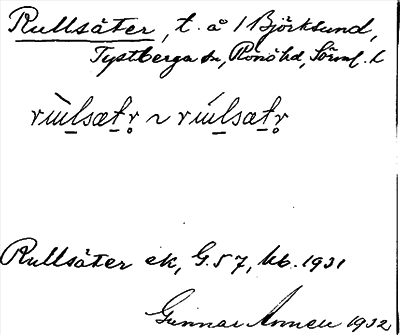 Rullsäter, t. å 1 Björksund,
Tystberga sn, Rönö hd, Sörml. l.
Rullsäter ek, G.57, kb. 1931
Gunnar Annell 1932